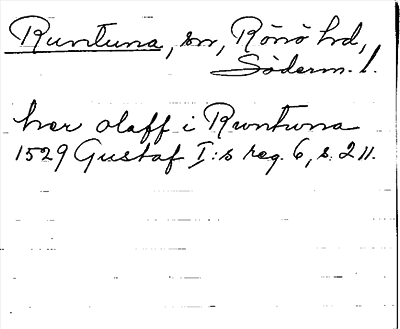 Runtuna, sn, Rönö hd,
Söderm. l.
her olaff i Runtuna
1529 Gustaf I:s reg. 6, s. 211.